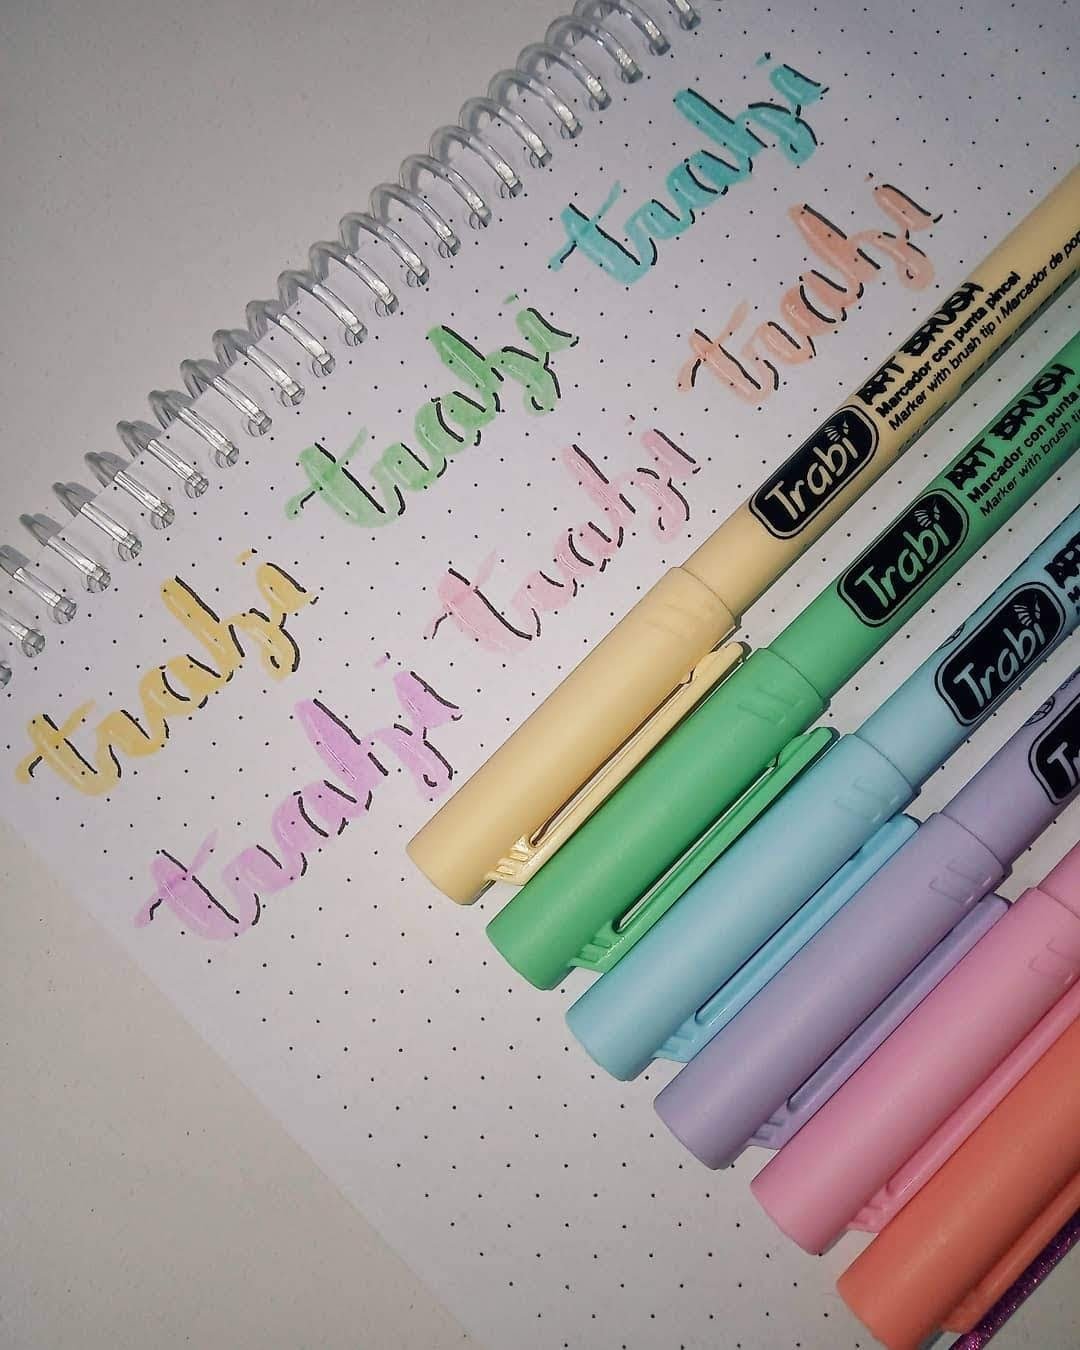 trabi
trabi
trabi
trabi
trabi
trabi
Trabi
ART BRUSH
Marcador con punta pincel
Marker with brush tip | Marcador de
Trabi
ART BRUSH
Marcador con punta
Marker with brush
Trabi